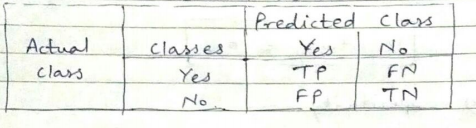 Predicted Class
Actual Classes Yes No
class Yes TP FN
No FP TN